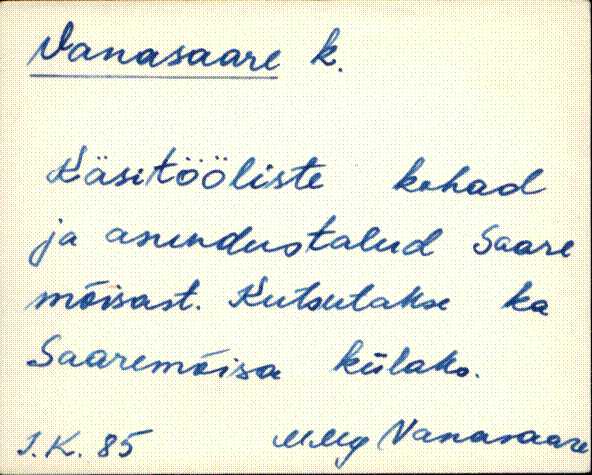 Vanasaare k.
Käsitööliste kohad
ja asundustalud Saare
mõisast. Kutsutakse ka
Saaremõisa külaks.
J.K. 85 MMg Vanasaare